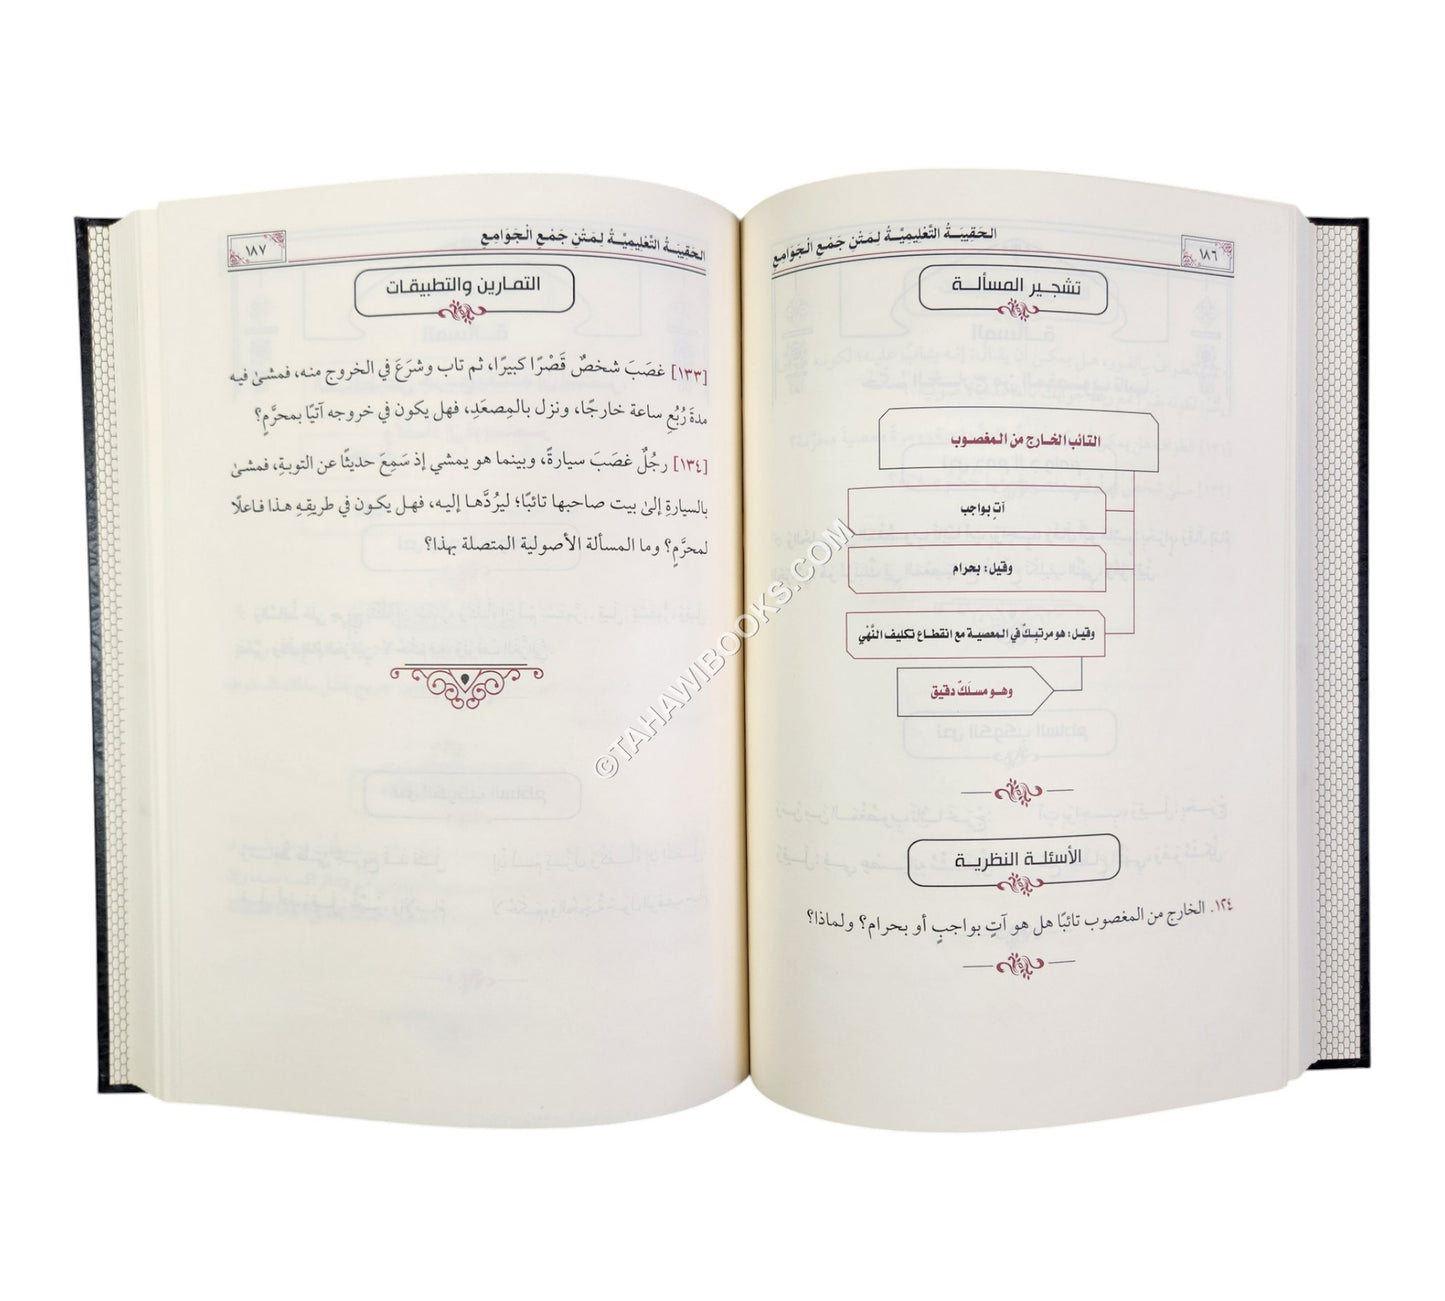 الحَقِيبَةُ التَّعْلِيمِيَّةُ لِمَتْنِ جَمْعِ الْجَوَامِعِ
١٨٦
تشجير المسألة
التائب الخارج من المغصوب
آتٍ بواجب
وقيل: بحرام
وقيل: هو مرتبكٌ في المعصية مع انقطاع تكليف النَّهْي
وهو مسلَكٌ دقيق
الأسئلة النظرية
١٢٤. الخارج من المغصوب تائبًا هل هو آتٍ بواجبٍ أو بحرام؟ ولماذا؟
الحَقِيبَةُ التَّعْلِيمِيَّةُ لِمَتْنِ جَمْعِ الْجَوَامِعِ
١٨٧
التمارين والتطبيقات
[١٣٣] غصَبَ شخصٌ قَصْرًا كبيرًا، ثم تاب وشرَعَ في الخروج منه، فمشىٰ فيه
مدةَ رُبُعِ ساعة خارجًا، ونزل بالمِصعَدِ، فهل يكون في خروجه آتيًا بمحرَّمٍ؟
[١٣٤] رجُلٌ غصَبَ سيارةً، وبينما هو يمشي إذ سَمِعَ حديثًا عن التوبةِ، فمشىٰ
بالسيارةِ إلىٰ بيت صاحبها تائبًا؛ ليرُدَّها إليه، فهل يكون في طريقِهِ هذا فاعلًا
لمحرَّمٍ؟ وما المسألة الأصولية المتصلة بهذا؟
©TAHAWIBOOKS.COM